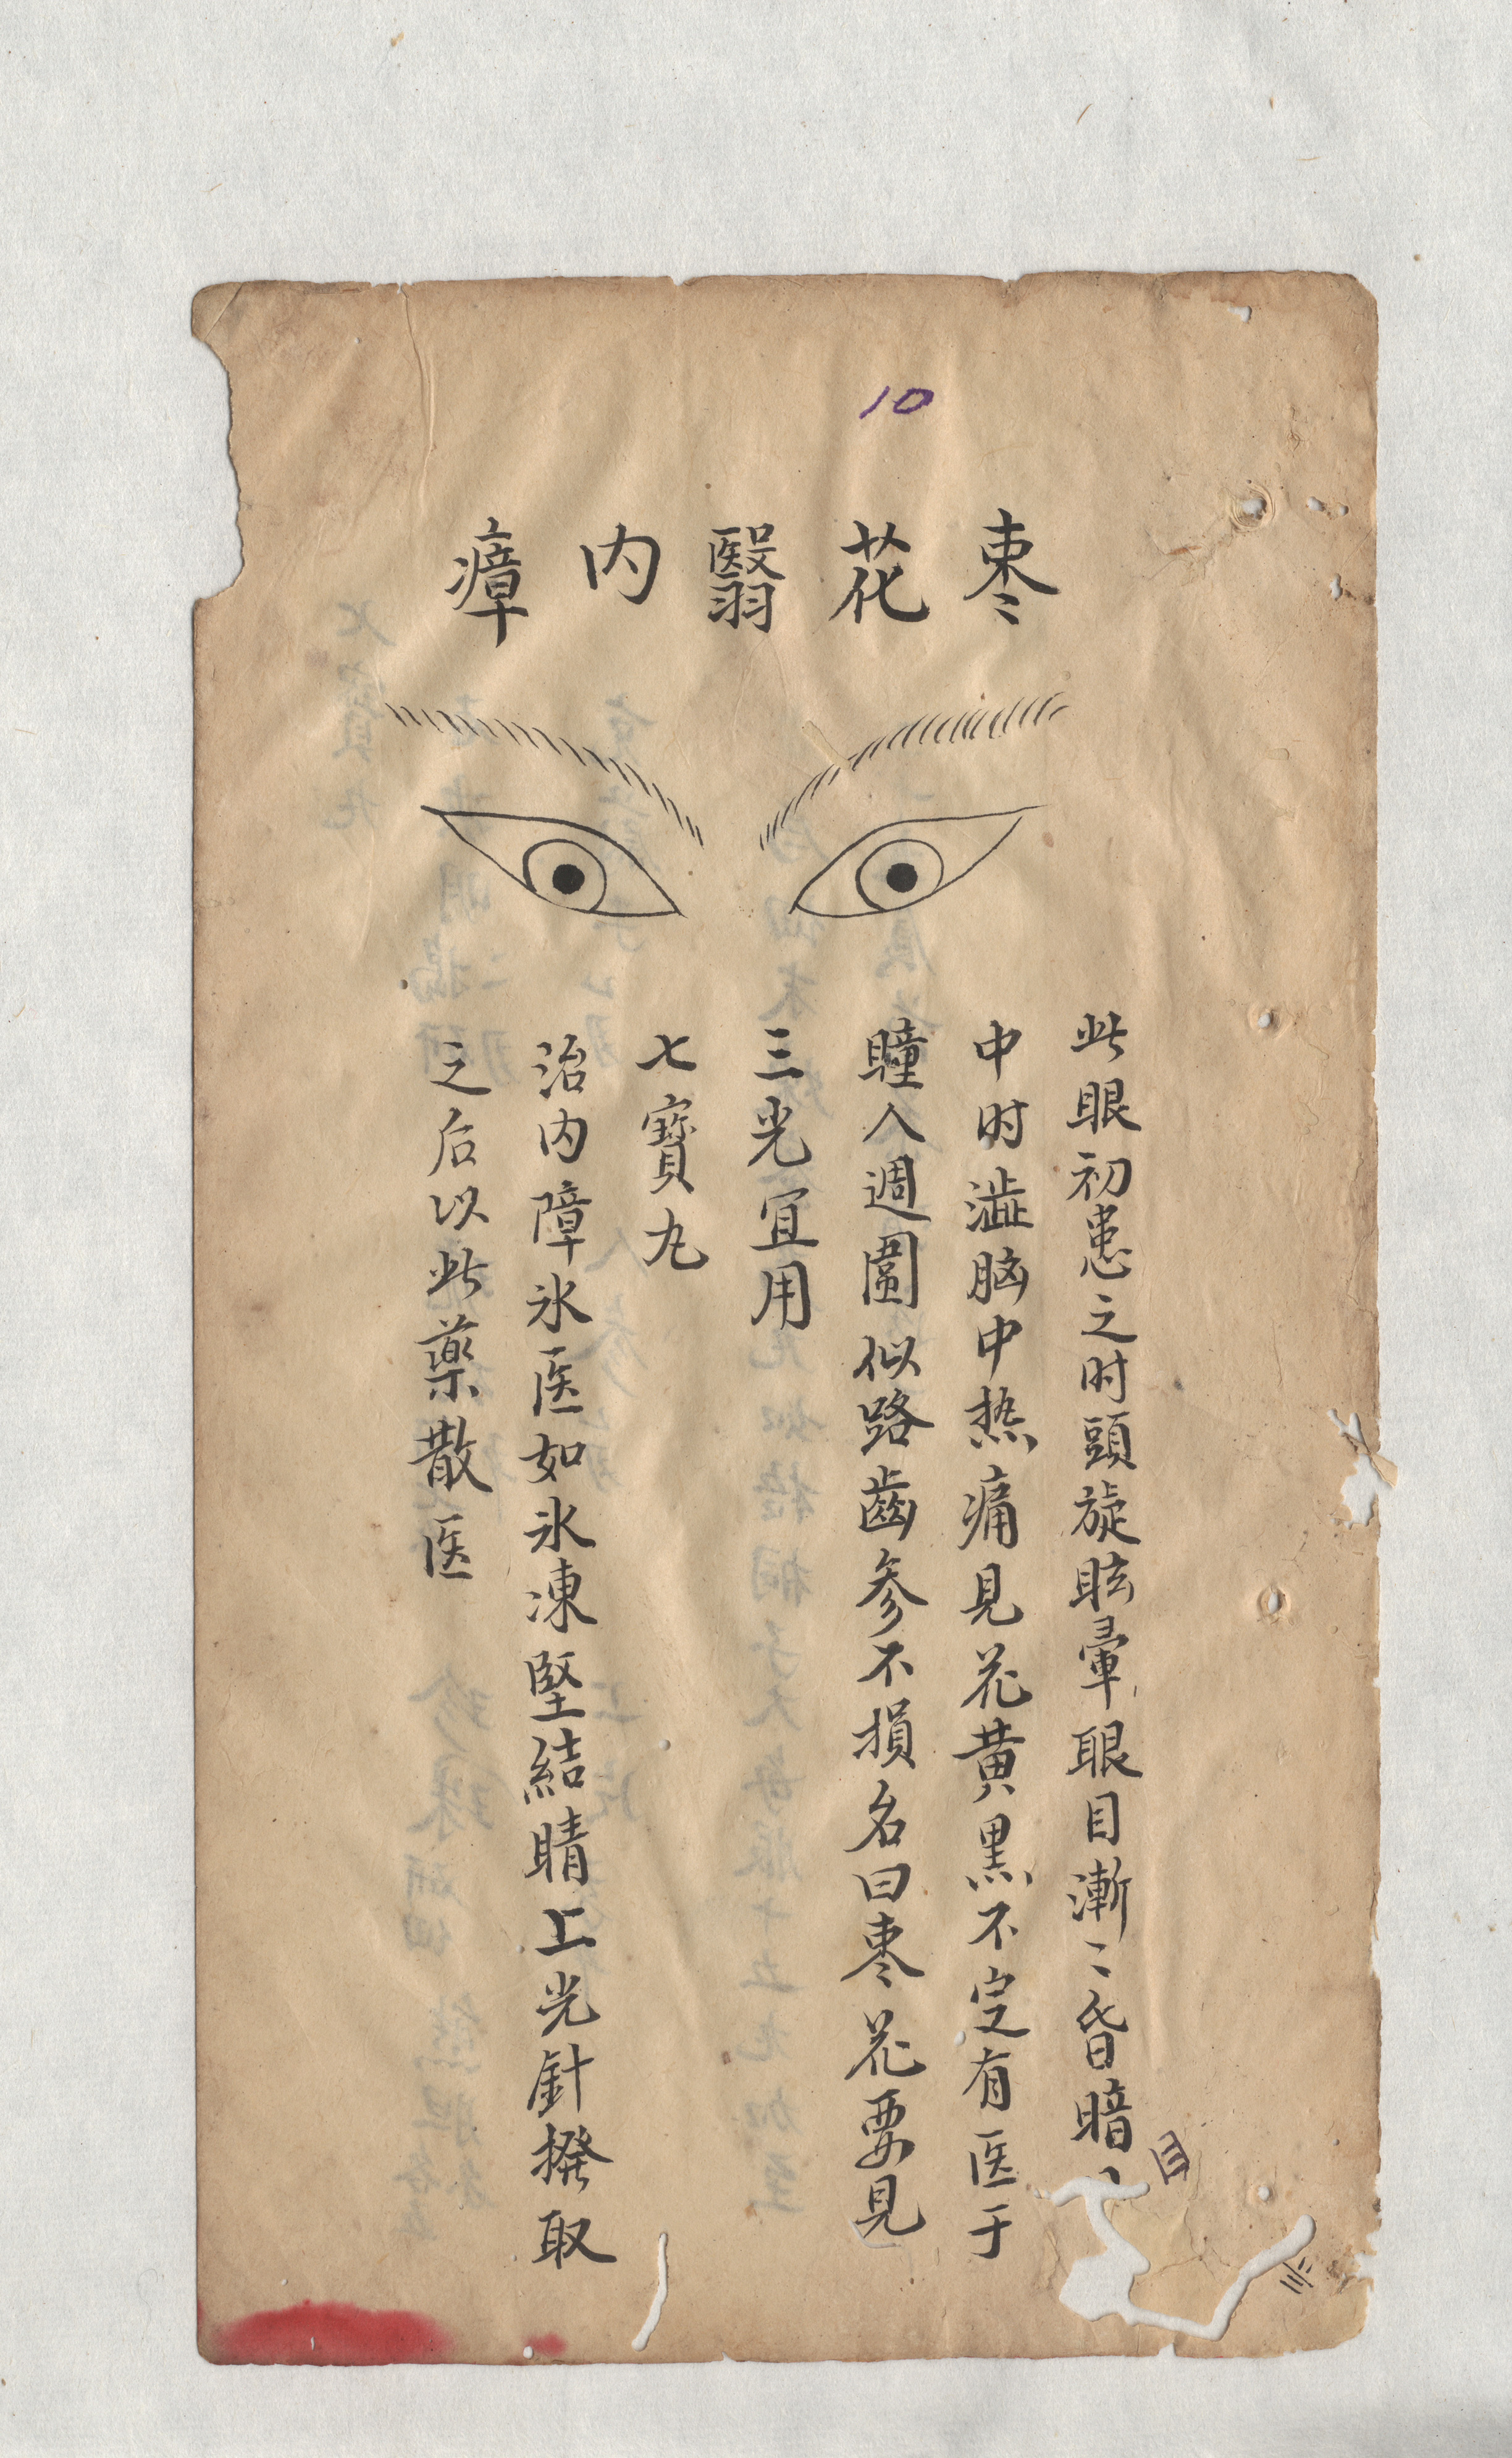 10
枣花翳内瘴
此眼初患之时頭旋眩暈眼目漸〻昏暗
中时澁脑中热痛見花黄黒不定有医于
瞳人週圍似路齒参不損名曰枣花要見
三光宜用
七寶丸
治内障氷医如氷凍堅結睛上光針撥取
之后以此藥散医